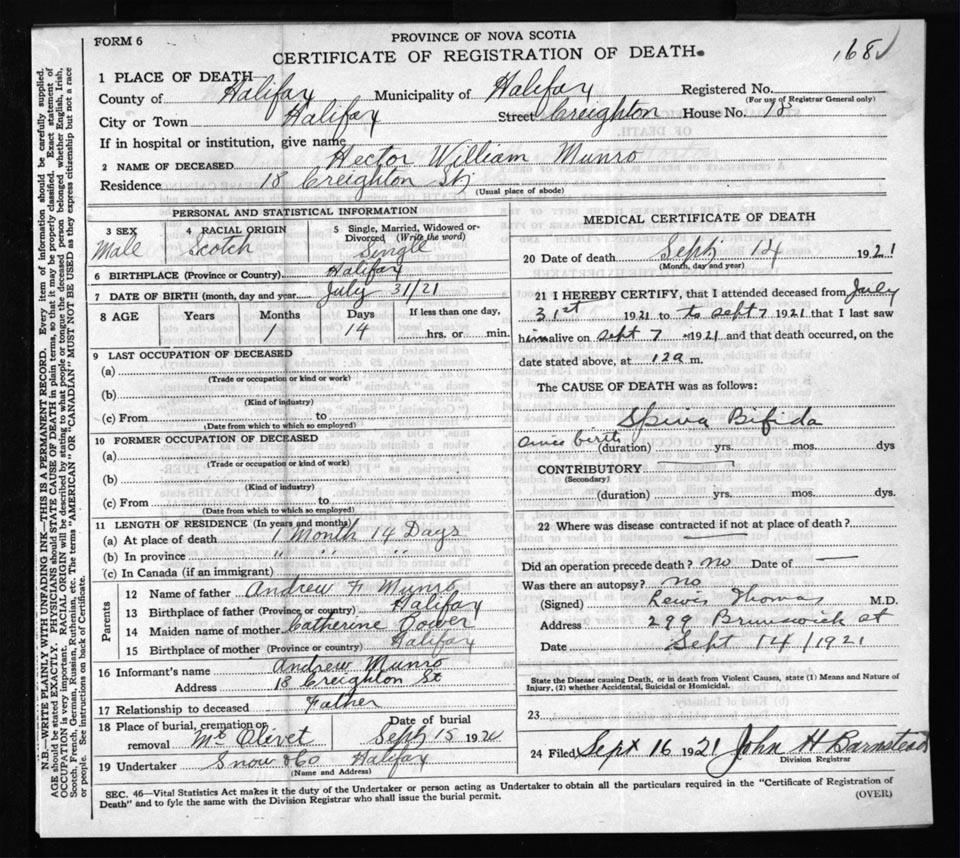 FORM 6
PROVINCE OF NOVA SCOTIA
CERTIFICATE OF REGISTRATION OF DEATH
168
1 PLACE OF DEATH
County of Halifax Municipality of Halifax Registered No.
(For use of Registrar General only)
City or Town Halifax Street Creighton House No. 18
If in hospital or institution, give name
2 NAME OF DECEASED Hector William Munro
Residence 18 Creighton St,
(Usual place of abode)
PERSONAL AND STATISTICAL INFORMATION
3 SEX Male
4 RACIAL ORIGIN Scotch
5 Single, Married, Widowed or Divorced (Write the word)
Single
6 BIRTHPLACE (Province or Country) Halifax
7 DATE OF BIRTH (month, day and year July 31/21
8 AGE Years Months Days If less than one day,
1 14 hrs. or min.
9 LAST OCCUPATION OF DECEASED
(a)
(Trade or occupation or kind or work)
(b)
(Kind of industry)
(c) From to
(Date from which to which so employed)
10 FORMER OCCUPATION OF DECEASED
(a)
(Trade or occupation or kind or work)
(b)
(Kind of industry)
(c) From to
(Date from which to which so employed)
11 LENGTH OF RESIDENCE (In years and months)
(a) At place of death 1 Month 14 Days
(b) In province " " "
(c) In Canada (if an immigrant)
Parents
12 Name of father Andrew F Munro
13 Birthplace of father (Province or country) Halifax
14 Maiden name of mother Catherine Power
15 Birthplace of mother (Province or country) Halifax
16 Informant's name Andrew Munro
Address 18 Creighton St
17 Relationship to deceased Father
18 Place of burial, cremation or removal Mt Olivet
Date of burial Sept 15 192
19 Undertaker Snow & Co Halifax
(Name and Address)
MEDICAL CERTIFICATE OF DEATH
20 Date of death Sept 14 1921
(Month, day and year)
21 I HEREBY CERTIFY, that I attended deceased from July
31st 1921 to to sept 7 1921 that I last saw
him alive on sept 7 1921 and that death occurred, on the
date stated above, at 12a m.
The CAUSE OF DEATH was as follows:
Spina Bifida
since birth
(duration) yrs. mos. dys
CONTRIBUTORY
(Secondary)
(duration) yrs. mos. dys.
22 Where was disease contracted if not at place of death?
Did an operation precede death? no Date of —
Was there an autopsy? no
(Signed) Lewis Thomas M.D.
Address 299 Brunswick st
Date Sept 14/1921
State the Disease causing Death, or in death from Violent Causes, state (1) Means and Nature of
Injury, (2) whether Accidental, Suicidal or Homicidal.
23
24 Filed Sept 16 1921 John H Barnstead
Division Registrar
SEC. 46—Vital Statistics Act makes it the duty of the Undertaker or person acting as Undertaker to obtain all the particulars required in the "Certificate of Registration of
Death" and to fyle the same with the Division Registrar who shall issue the burial permit.
(OVER)
N.B.—WRITE PLAINLY WITH UNFADING INK—THIS IS A PERMANENT RECORD. Every item of information should be carefully supplied.
AGE should be stated EXACTLY. PHYSICIANS should STATE CAUSE OF DEATH in plain terms, so that it may be properly classified. Exact statement of
OCCUPATION is very important. RACIAL ORIGIN will be described by stating to what people or tongue the deceased person belonged whether English, Irish,
Scotch, French, German, Russian, Ruthenian, etc. The terms "AMERICAN" OR "CANADIAN" MUST NOT BE USED as they express citizenship but not a race
or people. See instructions on back of Certificate.